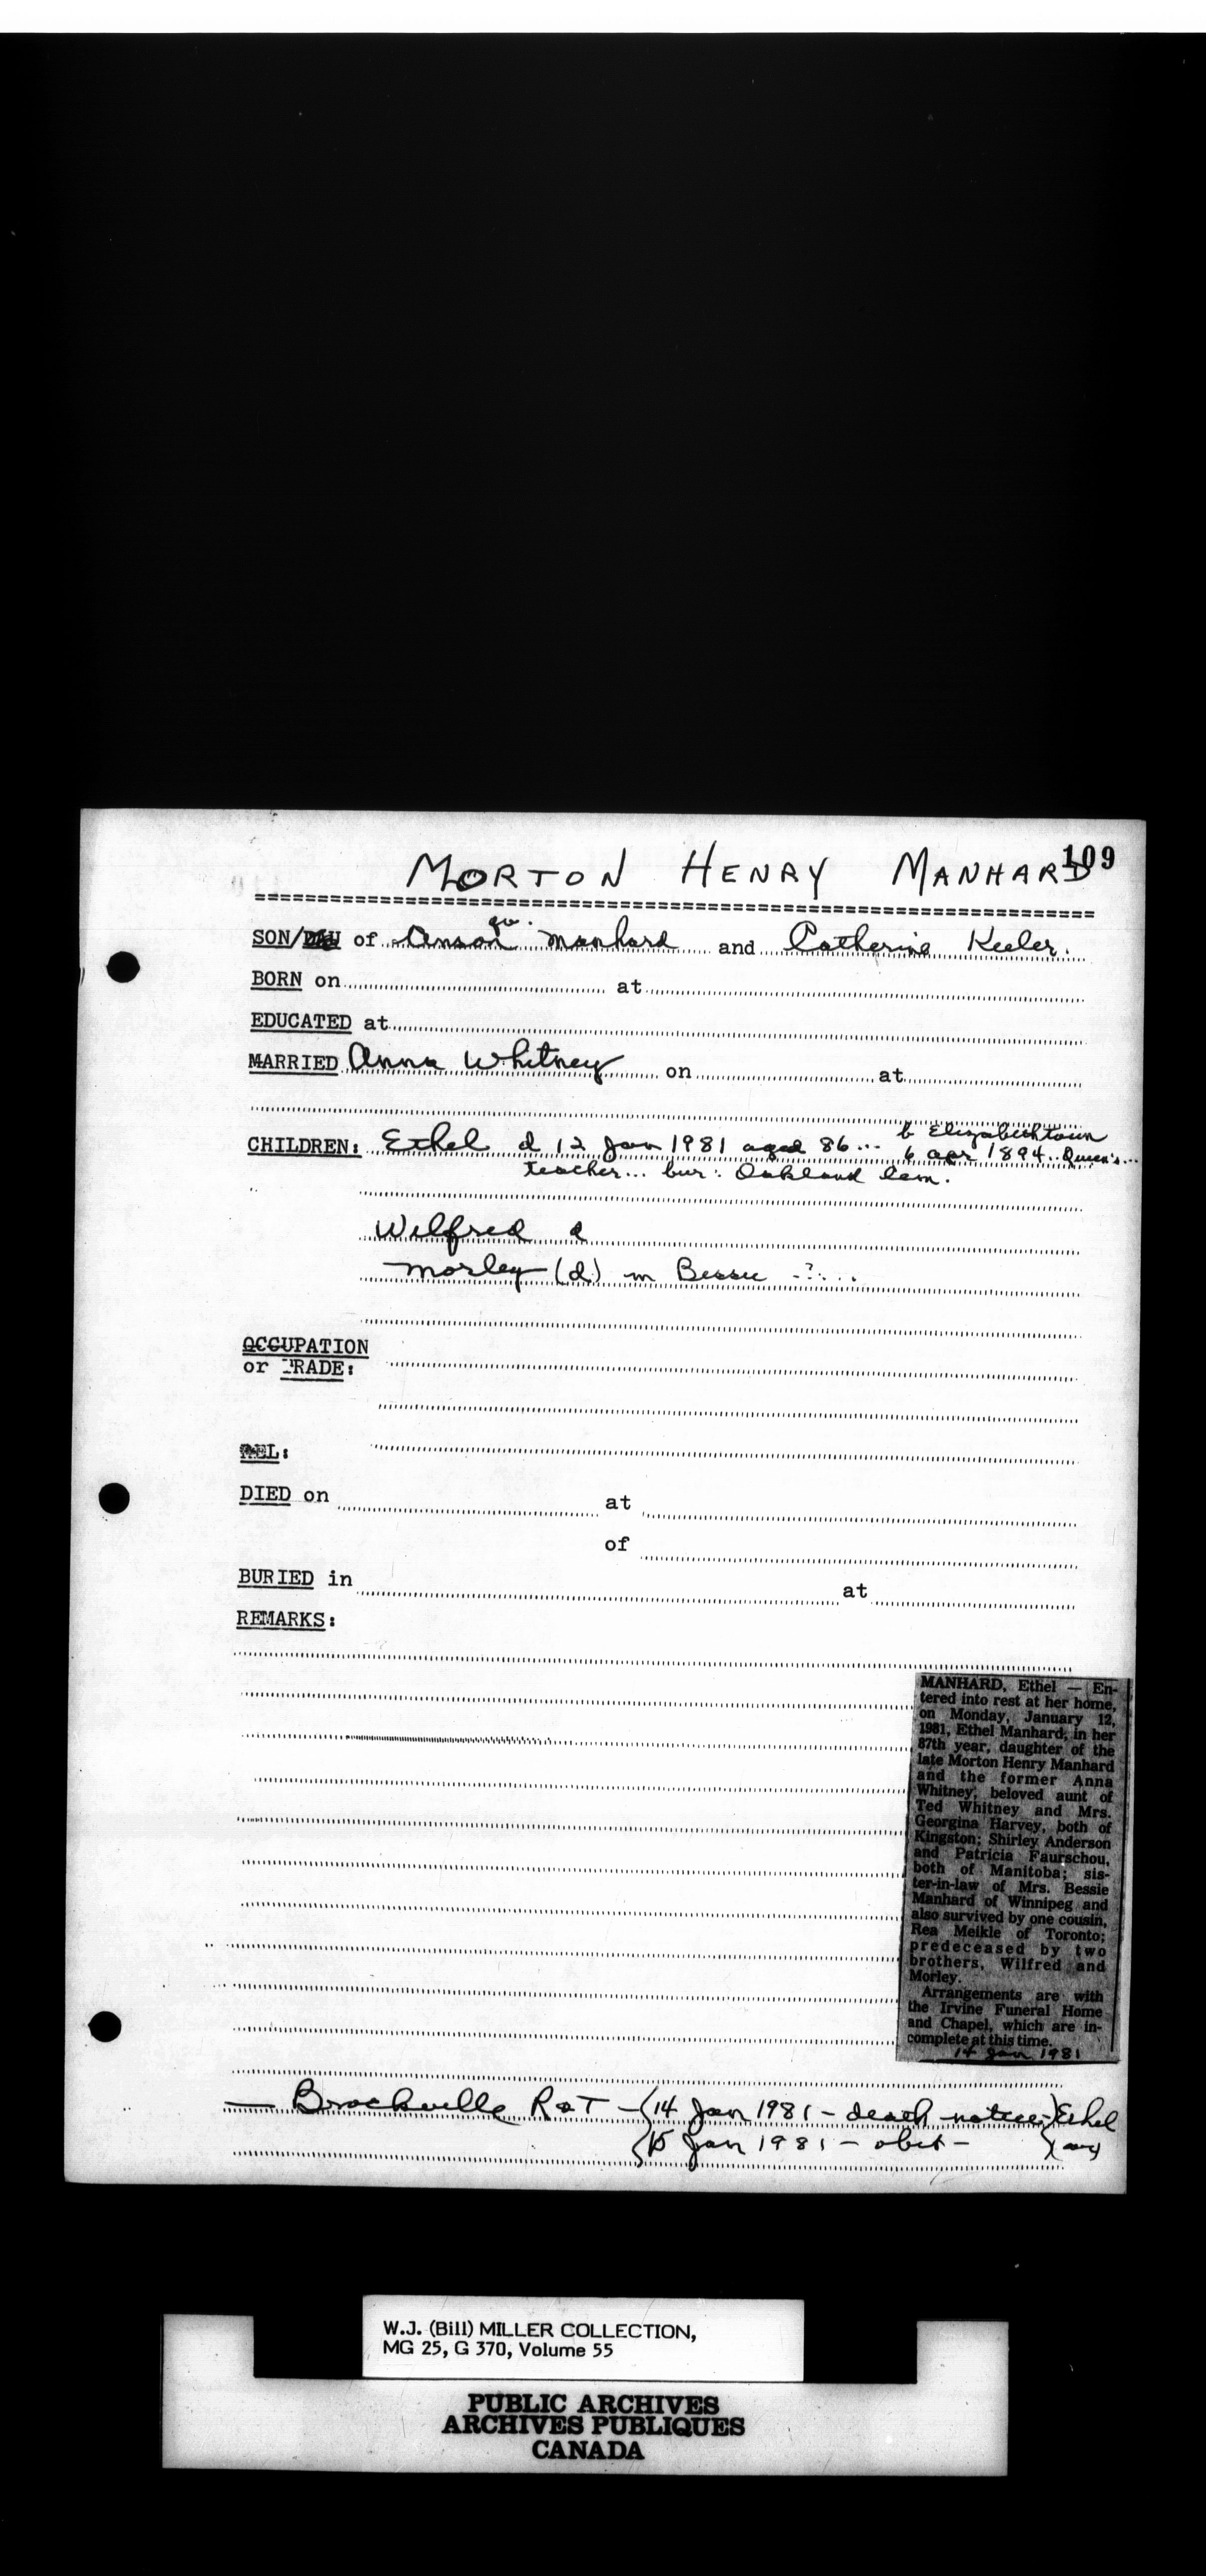 109
MORTON HENRY MANHARD
qv.
SON/ of Anson Manhard and Catherine Keeler.
BORN on at
EDUCATED at
MARRIED Anna Whitney on at
b Elizabethtown
CHILDREN: Ethel d 12 Jan 1981 aged 86... 6 Apr 1894.. Queen's...
teacher... bur: Oakland Cem.
Wilfred d
Morley (d) m Bessie ..?...
OCCUPATION
or TRADE:
REL:
DIED on at
of
BURIED in at
REMARKS:
MANHARD, Ethel — En-
tered into rest at her home,
on Monday, January 12,
1981, Ethel Manhard, in her
87th year, daughter of the
late Morton Henry Manhard
and the former Anna
Whitney, beloved aunt of
Ted Whitney and Mrs.
Georgina Harvey, both of
Kingston; Shirley Anderson
and Patricia Faurschou,
both of Manitoba; sis-
ter-in-law of Mrs. Bessie
Manhard of Winnipeg and
also survived by one cousin,
Rea Meikle of Toronto;
predeceased by two
brothers, Wilfred and
Morley.
Arrangements are with
the Irvine Funeral Home
and Chapel, which are in-
complete at this time.
14 Jan 1981
— Brockville R&T — {14 Jan 1981 — death notice } Ethel
{15 Jan 1981 — obit — }
W.J. (Bill) MILLER COLLECTION,
MG 25, G 370, Volume 55
PUBLIC ARCHIVES
ARCHIVES PUBLIQUES
CANADA